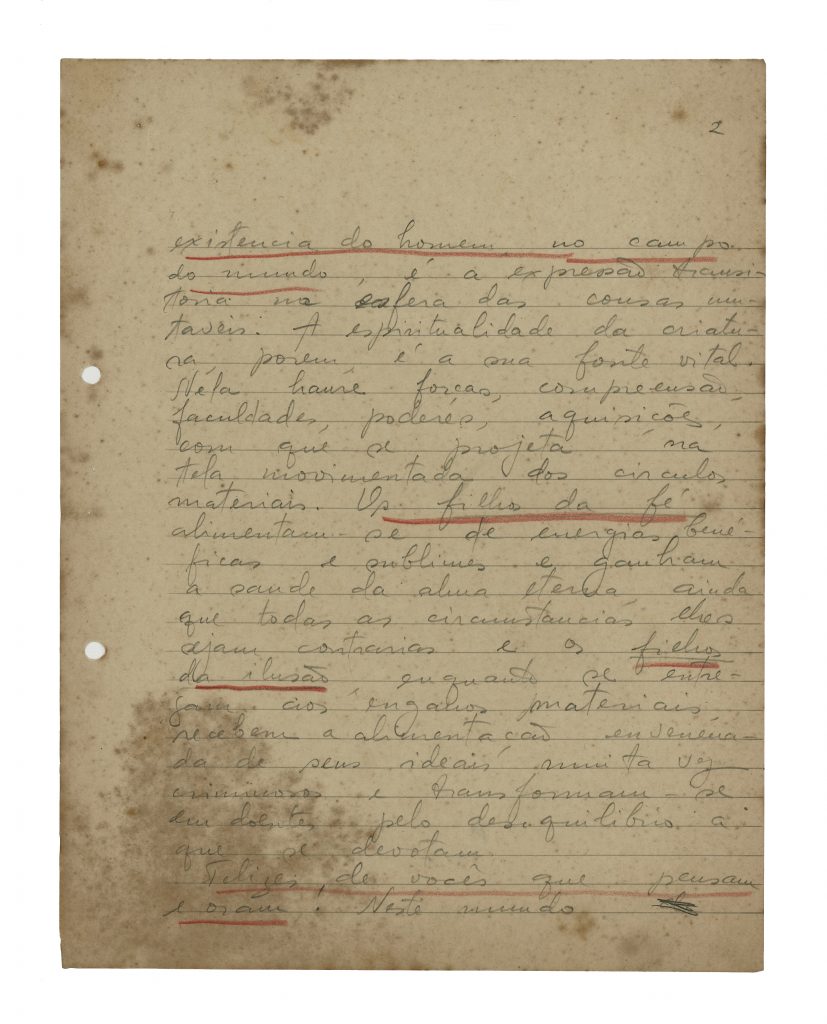 2
existencia do homem, no campo
do mundo, é a expressão transi-
toria na esfera das cousas mu-
taveis. A espiritualidade da criatu-
ra, porem, é a sua fonte vital.
Néla haure forças, compreensão,
faculdades, poderes, aquisições,
com que se projeta na
tela movimentada dos circulos
materiais. Os filhos da fé
alimentam-se de energias bené-
ficas e sublimes e ganham
a saude da alma eterna ainda
que todas as circumstancias lhes
sejam contrarias e os filhos
da ilusão enquanto se entre-
gam aos enganos materiais
recebem a alimentação envenena-
da de seus ideais muita vez
criminosos e transformam-se
em doentes pelo desequilibrio a
que se devotam.
Felizes de vocês que pensam
e oram! Neste mundo